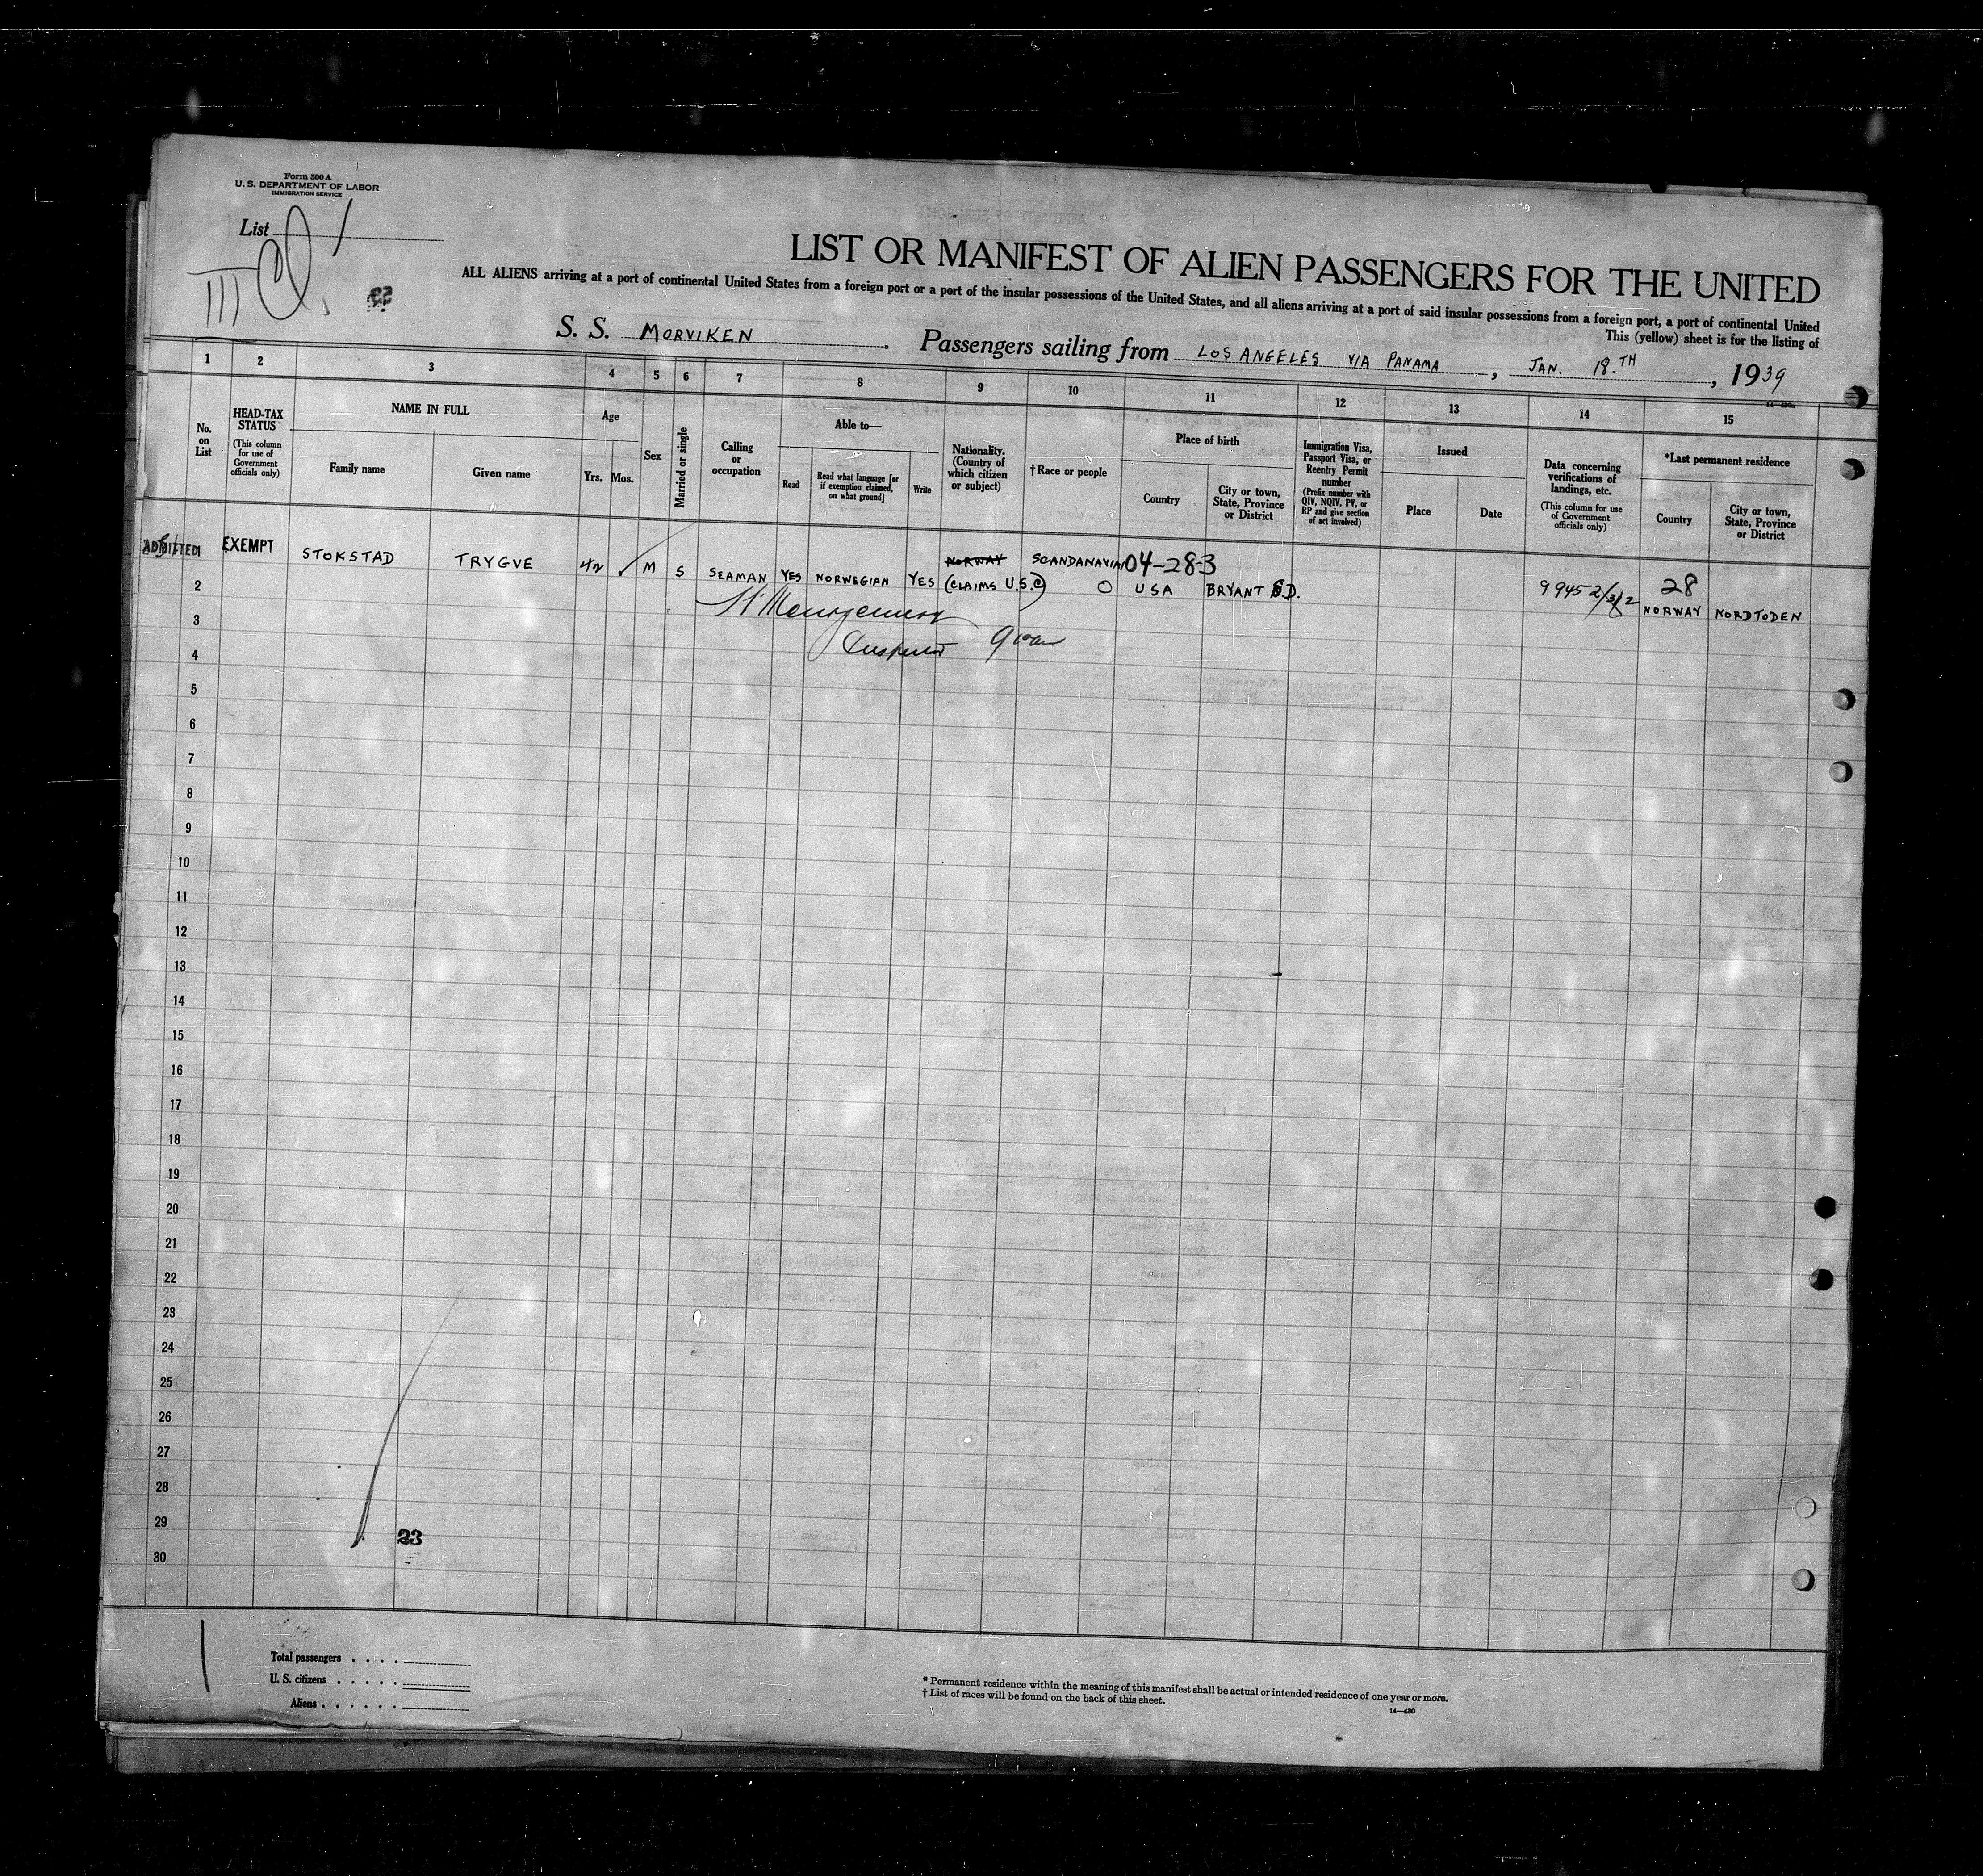 Form 500 A
U. S. DEPARTMENT OF LABOR
IMMIGRATION SERVICE
List 1
LIST OR MANIFEST OF ALIEN PASSENGERS FOR THE UNITED
ALL ALIENS arriving at a port of continental United States from a foreign port or a port of the insular possessions of the United States, and all aliens arriving at a port of said insular possessions from a foreign port, a port of continental United
This (yellow) sheet is for the listing of
S. S. MORVIKEN. Passengers sailing from LOS ANGELES VIA PANAMA, JAN. 18.TH, 1939
1 2 3 4 5 6 7 8 9 10 11 12 13 14 15
No. on List
HEAD-TAX STATUS
(This column for use of Government officials only)
NAME IN FULL
Family name
Given name
Age
Yrs. Mos.
Sex
Married or single
Calling or occupation
Able to—
Read
Read what language [or if exemption claimed, on what ground]
Write
Nationality. (Country of which citizen or subject)
†Race or people
Place of birth
Country
City or town, State, Province or District
Immigration Visa, Passport Visa, or Reentry Permit number
(Prefix number with QIV, NQIV, PV, or RP and give section of act involved)
Issued
Place
Date
Data concerning verifications of landings, etc.
(This column for use of Government officials only)
*Last permanent residence
Country
City or town, State, Province or District
ADMITTED EXEMPT STOKSTAD TRYGVE 42 M S SEAMAN YES NORWEGIAN YES NORWAY (CLAIMS U.S.C) SCANDANAVIAN 04-28-3 USA BRYANT S.D. 28 NORWAY NORDTODEN
2
3
4
5
6
7
8
9
10
11
12
13
14
15
16
17
18
19
20
21
22
23
24
25
26
27
28
29
30
23
Total passengers
U. S. citizens
Aliens
* Permanent residence within the meaning of this manifest shall be actual or intended residence of one year or more.
† List of races will be found on the back of this sheet.
14—430